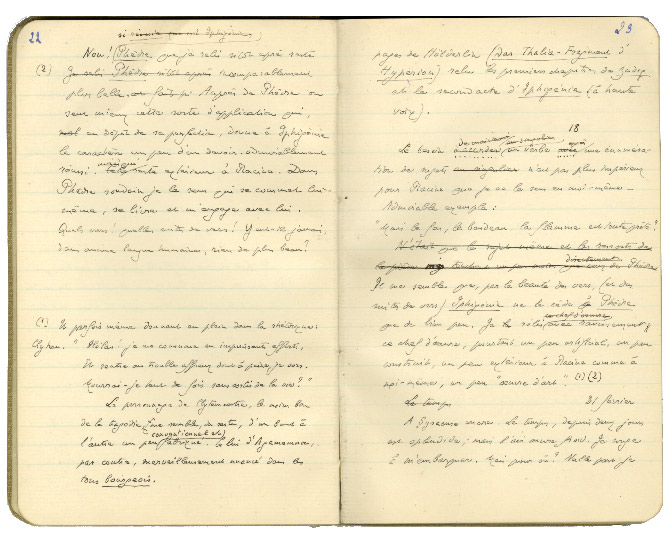 22
si
Non! (Phèdre que je relis sitôt après
(2) Je relis Phèdre sitôt après incomparablement
plus belle. Auprès de Phèdre on
sent mieux cette sorte d'application qui,
en dépit de sa perfection, donne à Iphigénie
le caractère un peu d'un devoir admirablement
réussi. extérieur à Racine. Dans
Phèdre soudain je le sens qui se commet lui-
même, se livre et m'engage avec lui.
Quels vers! quelles suites de vers! Y eut-il jamais,
dans aucune langue humaine, rien de plus beau?
(1) Et parfois même donnant un place dans la rhétorique:
"Hélas! je me consume en impuissants efforts,
Et rentre au trouble affreux dont à peine je sors.
Mourrai-je tant de fois sans sortir de la vie?"
Le personnage de Clytemnestre, le moins bon
de la tragédie me semble, en vers, d'un bout à
conventionnel et
l'autre un peu fabriqué. Celui d'Agamemnon,
par contre, merveilleusement nuancé dans les
tons bourgeois.
23
pages de Hölderlin (Das Thalia-Fragment d'
Hyperion) relu les premiers chapitres de Zadig
et le second acte d'Iphigénie (à haute
voix).
18
Le besoin
du verbe une
des sujets n'est pas plus impérieux
pour Racine que je ne le sens en moi-même.
Admirable exemple:
"Mais le fer, le bandeau, la flamme est toute prête."
N'était que le sujet même et les ressorts de
directement
la pièce touchent un peu moins que ceux de Phèdre
Il me semble que, par la beauté des vers, (et des
suites de vers) Iphigénie ne le cède à Phèdre
que de bien peu. Je
ce chef d'œuvre, pourtant un peu artificiel, un peu
construit, un peu extérieur à Racine comme à
moi-même, un peu "œuvre d'art". (1) (2)
Le temps 21 février
A Syracuse encore. Le temps, depuis deux jours
est splendide; mais l'air encore froid. Je songe
à m'embarquer. Mais pour où? Nulle part je